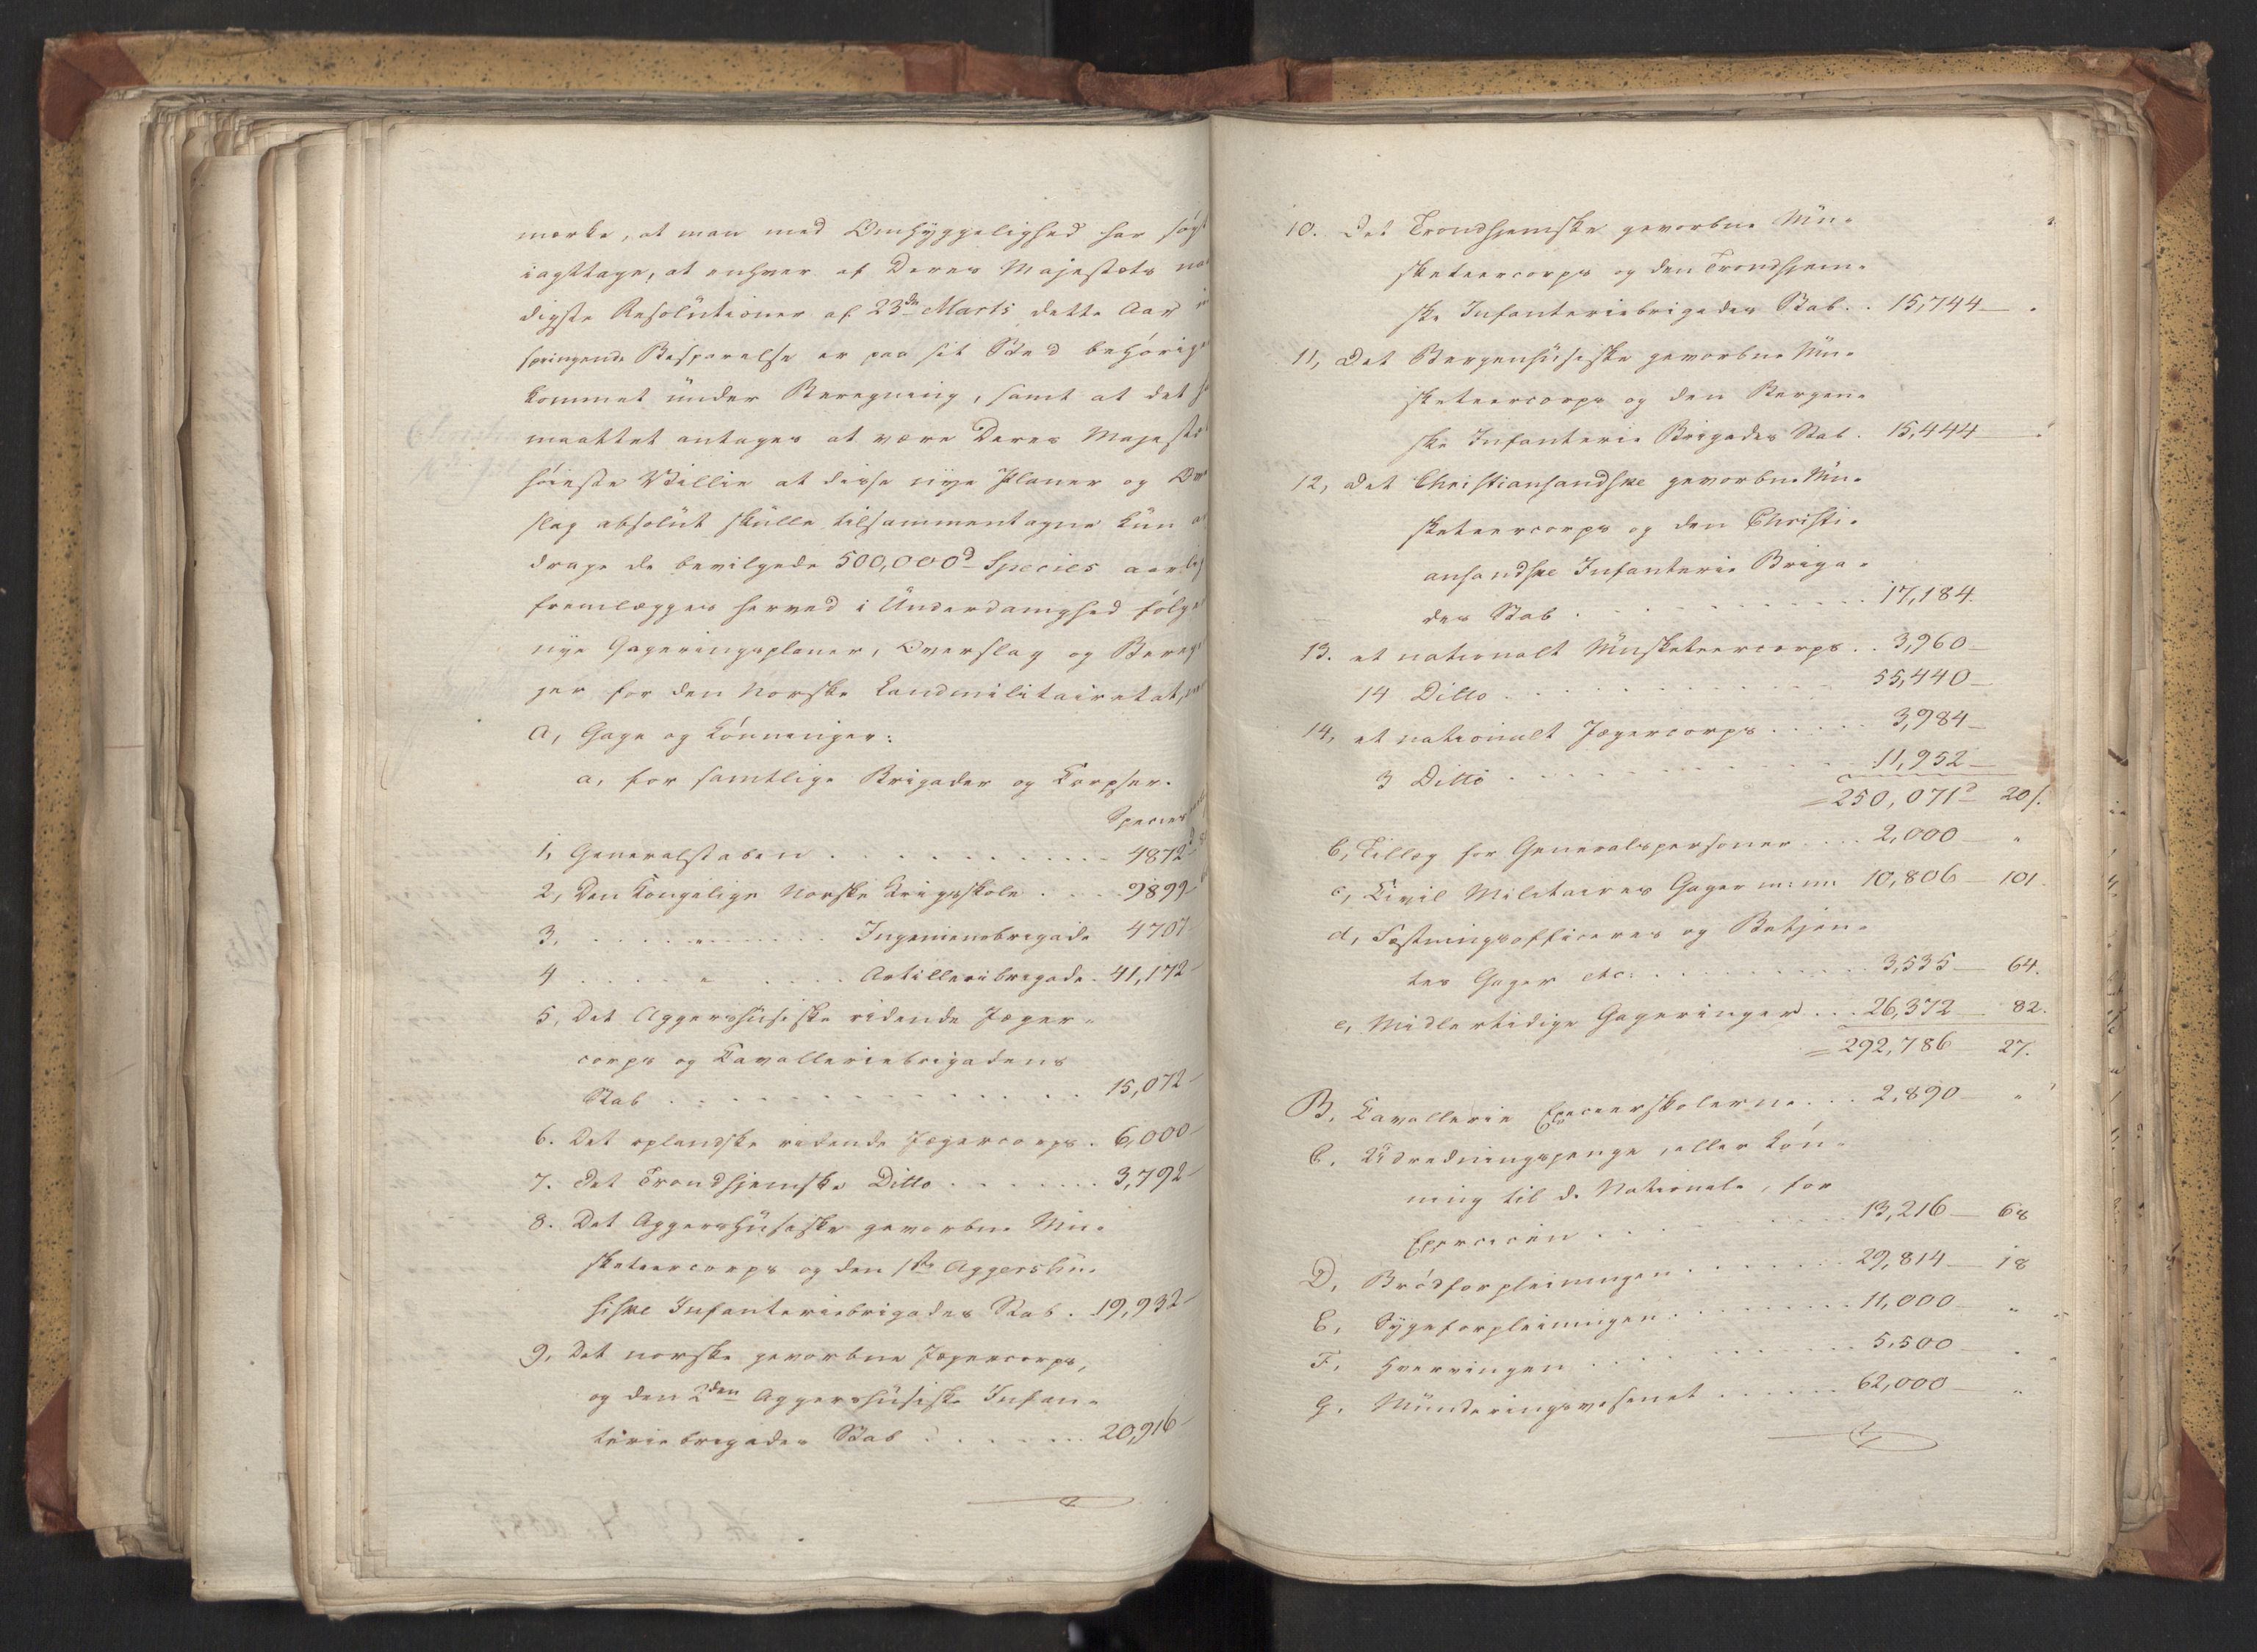 mærke, at man med Omhyggelighed har søgt
iagttage, at enhver af Deres Majestæts naa
digste Resolutioner af 23de Marts dette Aar
springende Besparelse er paa sit Sted behørigen
kommet under Beregning, samt at det
maattet antages at være Deres Majestæts
høieste Villie at disse nye Planer og Over
slag absolut skulle tilsammentagne kun
drage de bevilgede 500,000d Species aarlig
fremlægges herved i Underdanighed følgen
nye Gageringsplaner, Overslag og Beregn
ger for den Norske Landmilitairetat,
A, Gage og Lønninger:
a, for samtlige Brigader og Corpser.
Species
1, Generalstaben . . . 4872
2, Den Kongelige Norske Krigsskole . . . 9899
3. . . . " . . . Ingenieurbrigade 4707
4 . . . " . . . Artilleribrigade. 41,172
5, Det Aggershusiske ridende Jæger-
corps og Cavalleriebrigadens
Stab . . . 15,072
6. Det oplandske ridende Jægercorps. 6,000
7. Det Trondhjemske Ditto . . . 3,792
8. Det Aggershusiske gevorbne Mu-
sketeercorps og den 1ste Aggershu-
siske Infanteriebrigades Stab. 19,932
9, Det norske gevorbne Jægercorps,
og den 2den Aggershusiske Infan-
teriebrigades Stab . . . 20,916
10. Det Trondhjemske gevorbne Mu-
sketeercorps og den Trondhjem-
ske Infanteriebrigades Stab. . 15,744
11, Det Bergenhusiske gevorbne Mu-
sketeercorps og den Bergen-
ske Infanterie Brigades Stab. 15,444
12, Det Christiansandske gevorbne Mu-
sketeercorps og den Christi-
ansandske Infanterie Briga-
des Stab . . . 17,184.
13. et nationalt Musketeercorps. . 3,960
14 Ditto . . . 55,440
14, et nationalt Jægercorps . . . 3,984
3 Ditto . . . 11,952
= 250,071d 20s.
b, Tillæg for Generalspersoner . . . 2,000 "
c, Civil Militaires Gager m: m: 10,806 101.
d, Fæstningsofficerers og Betjen-
tes Gager etc: . . . 3,535 64.
e, Midlertidige Gageringer . . . 26,372 82.
= 292,786 27.
B. Cavallerie Exerceerskolerne . . . 2,890 "
C. Udredningspenge, eller Løn-
ning til de Nationale, for
Exercicen . . . 13,216 68
D, Brødforpleiningen . . . 29,814 18
E, Sygeforpleiningen . . . 11,000 "
F, Hververingen . . . 5,500
G. Munderingsvæsenet . . . 62,000 "